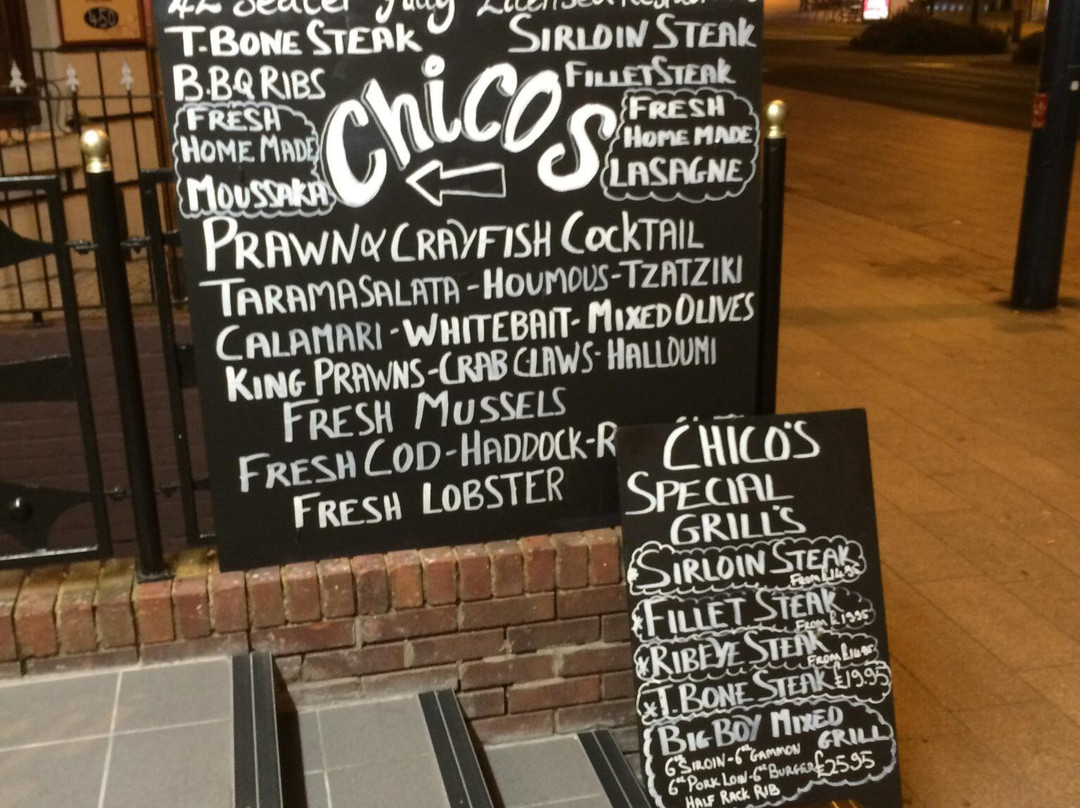 450
42 Seater Fully Licensed
T-BONE STEAK SIRLOIN STEAK
B.B.Q RIBS FILLET STEAK
Chicos
FRESH
HOME MADE
MOUSSAKA
FRESH
HOME MADE
LASAGNE
PRAWN & CRAYFISH COCKTAIL
TARAMASALATA - HOUMOUS - TZATZIKI
CALAMARI - WHITEBAIT - MIXED OLIVES
KING PRAWNS - CRAB CLAWS - HALLOUMI
FRESH MUSSELS
FRESH COD - HADDOCK - R
FRESH LOBSTER
CHICO'S
SPECIAL
GRILL'S
SIRLOIN STEAK
From £14.95
FILLET STEAK
From £19.95
RIBEYE STEAK
From £14.95
T.BONE STEAK £19.95
BIG BOY MIXED
GRILL
6oz SIROIN - 6oz GAMMON
6oz PORK LOIN - 6oz BURGER £25.95
HALF RACK RIB